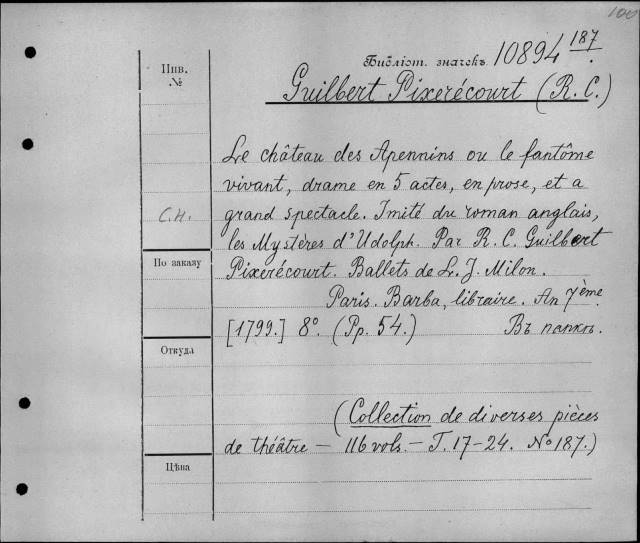 100
Библіот. значекъ 10894 187.
Инв.
№
Guilbert Pixerécourt (R. C.)
Le château des Apennins ou le fantôme
vivant, drame en 5 actes, en prose, et a
grand spectacle. Imité du roman anglais,
С.Н.
les Mystères d'Udolph. Par R. C. Guilbert
По заказу
Pixerécourt. Ballets de L. J. Milon.
Paris. Barba, libraire. An 7ème
[1799.] 8°. (Pp. 54.) Въ папкѣ.
Откуда
(Collection de diverses pièces
de théâtre — 116 vols. — T. 17-24. No 187.)
Цѣна